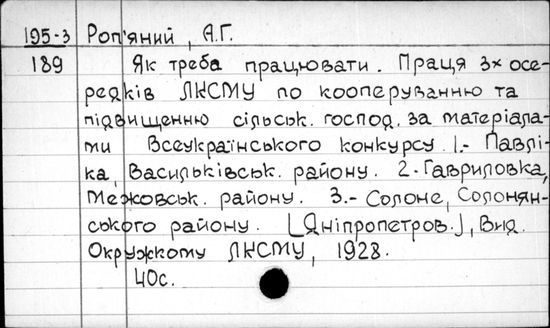 195-3 Роп'яний, А.Г.
189 Як треба працювати. Праця 3х осе-
редків ЛКСМУ по кооперуванню та
підвищенню сільськ. господ. за матеріала-
ми Всеукраїнського конкурсу. 1.- Павлі-
ка, Васильківськ. району. 2.-Гавриловка,
Межовськ. району. 3.- Солоне, Солонян-
ського району. [Дніпропетров.], Вид.
Окружкому ЛКСМУ, 1928.
40с.